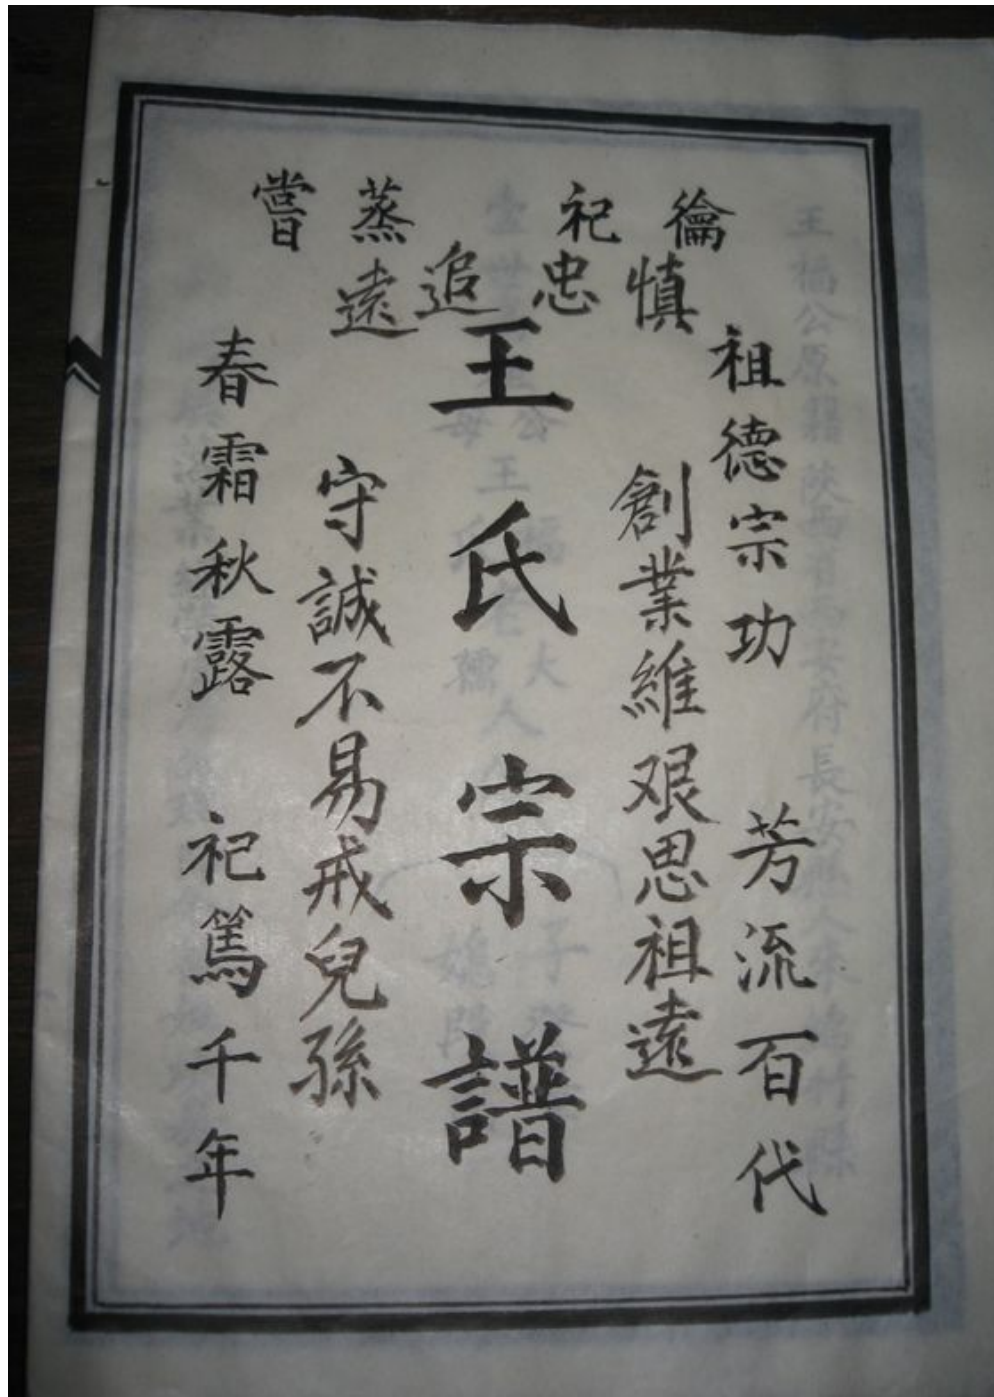 禴祀蒸嘗
慎忠追遠
祖德宗功 芳流百代
創業維艱思祖遠
王氏宗譜
守誠不易戒兒孫
春霜秋露 祀篤千年